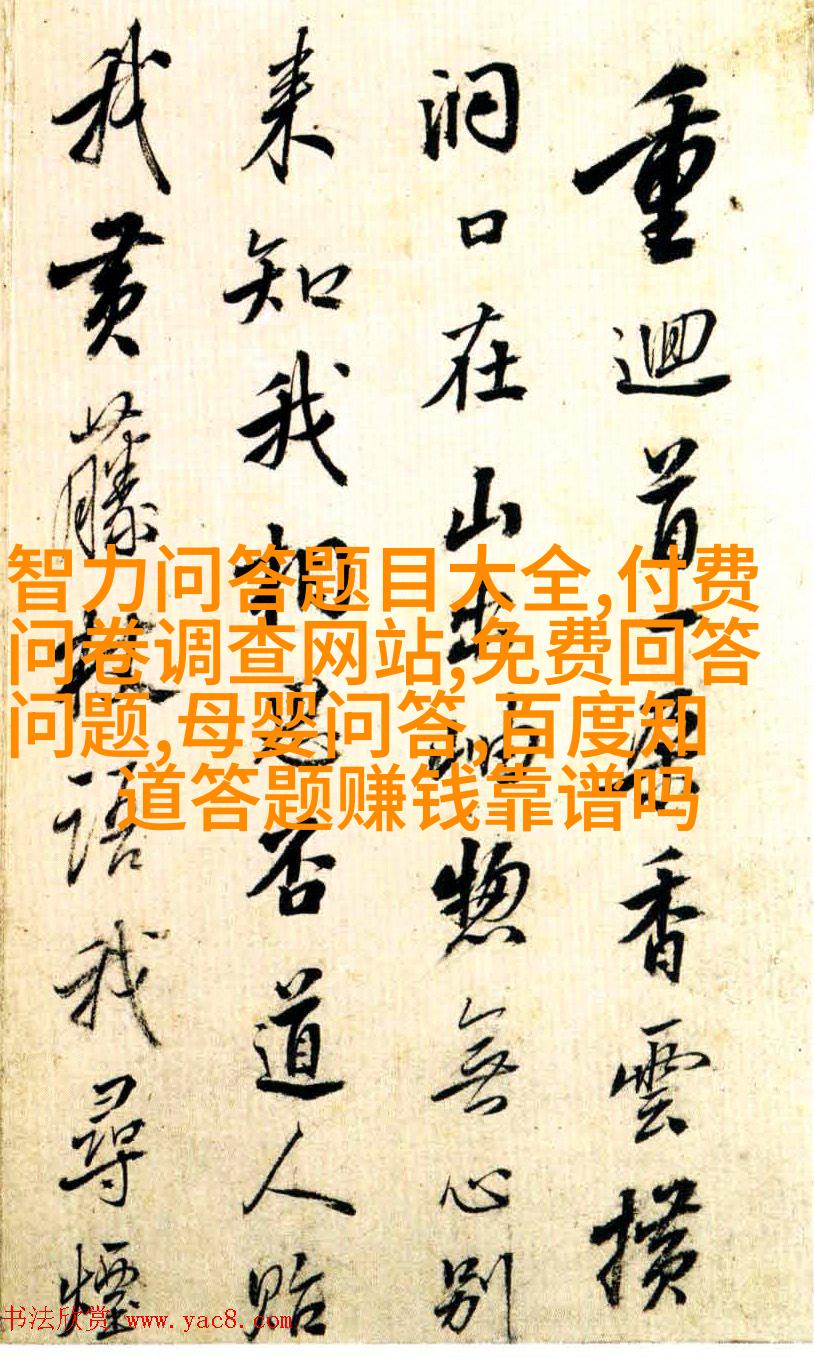 重迴首一香雲
洞口在山出惣無心别
来知我相否道人貽
我黄藤杖語我尋煙
智力问答题目大全,付费
问卷调查网站,免费回答
问题,母婴问答,百度知
道答题赚钱靠谱吗
书法欣赏 www.yac8.com